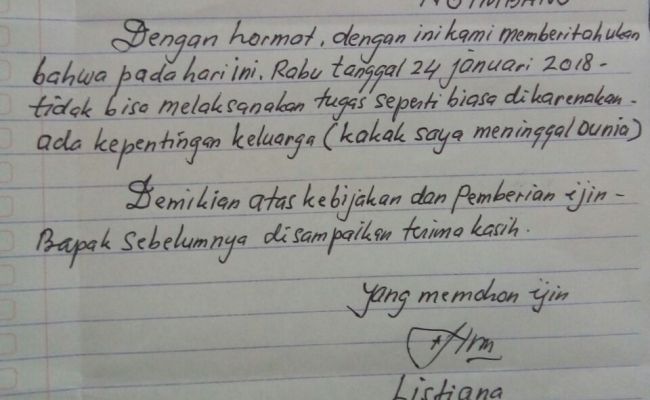 Dengan hormat, dengan ini kami memberitahukan
bahwa pada hari ini, Rabu tanggal 24 januari 2018 -
tidak bisa melaksanakan tugas seperti biasa dikarenakan -
ada kepentingan keluarga (kakak saya meninggal Dunia)
Demikian atas kebijakan dan Pemberian ijin -
Bapak sebelumnya disampaikan terima kasih.
yang memohon ijin
Listiana